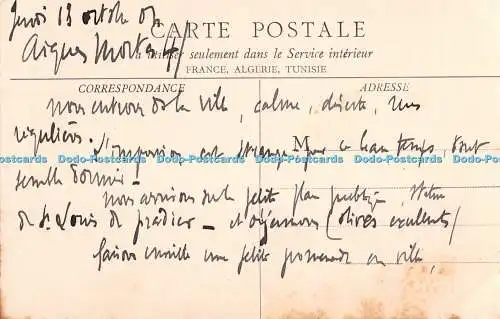 Jeudi 13 octobre 04
Aigues Mortes 4
CARTE POSTALE
à utiliser seulement dans le Service intérieur
FRANCE, ALGERIE, TUNISIE
CORRESPONDANCE
ADRESSE
nous entrons dans la ville, calme, déserte, rues
régulières.
L'impression est étrange par ce beau temps, tout
M
Dodo-Postcards Dodo-Postcards Dodo-Postcards Dodo-Postcards Dodo-Postcards Dodo-Postcards Dodo-Postcards Dodo-Postcards
semble dormir -
nous arrivons sur la petite place publique, statue
de St Louis de Pradier - et déjeunons (olives excellentes)
faisons ensuite une petite promenade en ville,